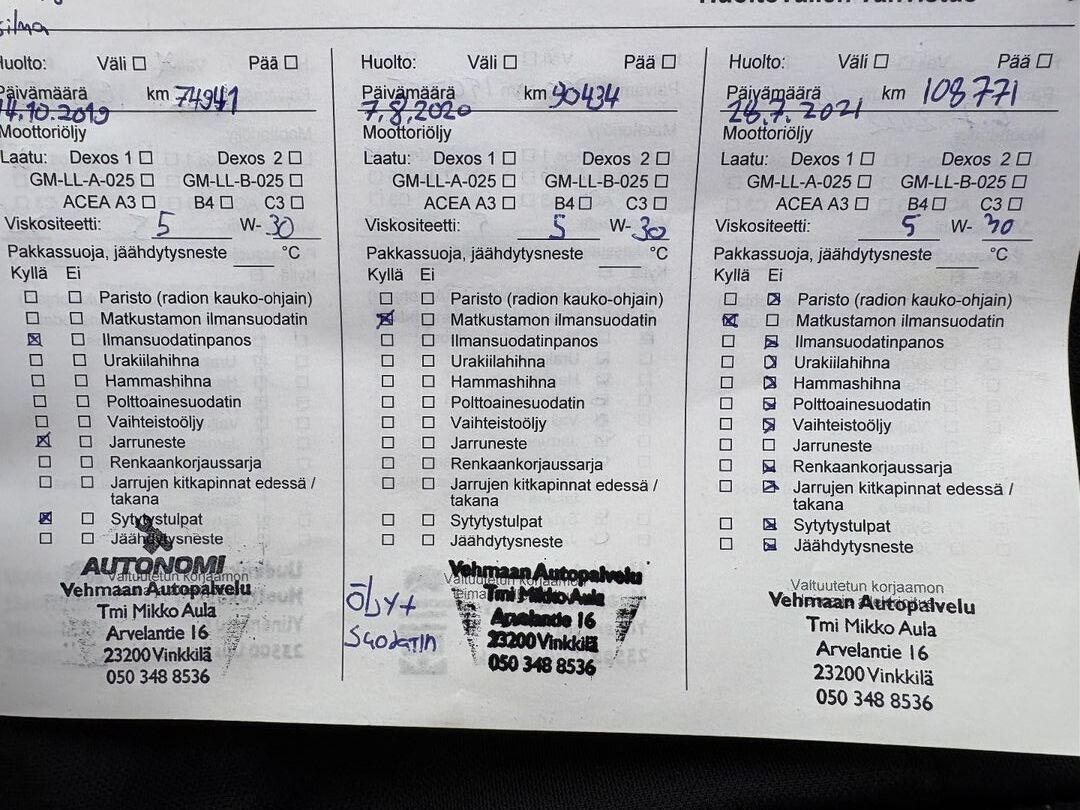 silma
Huolto: Väli ☐ Pää ☐
Päivämäärä km 74941
14.10.2019
Moottoriöljy
Laatu: Dexos 1 ☐ Dexos 2 ☐
GM-LL-A-025 ☐ GM-LL-B-025 ☐
ACEA A3 ☐ B4 ☐ C3 ☐
Viskositeetti: 5 W- 30
Pakkassuoja, jäähdytysneste ___ °C
Kyllä Ei
☐ ☐ Paristo (radion kauko-ohjain)
☐ ☐ Matkustamon ilmansuodatin
☒ ☐ Ilmansuodatinpanos
☐ ☐ Urakiilahihna
☐ ☐ Hammashihna
☐ ☐ Polttoainesuodatin
☐ ☐ Vaihteistoöljy
☒ ☐ Jarruneste
☐ ☐ Renkaankorjaussarja
☐ ☐ Jarrujen kitkapinnat edessä /
takana
☒ ☐ Sytytystulpat
☐ ☐ Jäähdytysneste
AUTONOMI
Valtuutetun korjaamon
Vehmaan Autopalvelu
Tmi Mikko Aula
Arvelantie 16
23200 Vinkkilä
050 348 8536
Huolto: Väli ☐ Pää ☐
Päivämäärä km 90434
7.8.2020
Moottoriöljy
Laatu: Dexos 1 ☐ Dexos 2 ☐
GM-LL-A-025 ☐ GM-LL-B-025 ☐
ACEA A3 ☐ B4 ☐ C3 ☐
Viskositeetti: 5 W- 30
Pakkassuoja, jäähdytysneste ___ °C
Kyllä Ei
☐ ☐ Paristo (radion kauko-ohjain)
☒ ☐ Matkustamon ilmansuodatin
☐ ☐ Ilmansuodatinpanos
☐ ☐ Urakiilahihna
☐ ☐ Hammashihna
☐ ☐ Polttoainesuodatin
☐ ☐ Vaihteistoöljy
☐ ☐ Jarruneste
☐ ☐ Renkaankorjaussarja
☐ ☐ Jarrujen kitkapinnat edessä /
takana
☐ ☐ Sytytystulpat
☐ ☐ Jäähdytysneste
Öljy +
Suodatin
Valtuutetun korjaamon
Vehmaan Autopalvelu
Tmi Mikko Aula
Arvelantie 16
23200 Vinkkilä
050 348 8536
Huolto: Väli ☐ Pää ☐
Päivämäärä km 108771
28.7.2021
Moottoriöljy
Laatu: Dexos 1 ☐ Dexos 2 ☐
GM-LL-A-025 ☐ GM-LL-B-025 ☐
ACEA A3 ☐ B4 ☐ C3 ☐
Viskositeetti: 5 W- 30
Pakkassuoja, jäähdytysneste ___ °C
Kyllä Ei
☐ ☒ Paristo (radion kauko-ohjain)
☒ ☐ Matkustamon ilmansuodatin
☐ ☒ Ilmansuodatinpanos
☐ ☒ Urakiilahihna
☐ ☒ Hammashihna
☐ ☒ Polttoainesuodatin
☐ ☒ Vaihteistoöljy
☐ ☐ Jarruneste
☐ ☒ Renkaankorjaussarja
☐ ☒ Jarrujen kitkapinnat edessä /
takana
☐ ☒ Sytytystulpat
☐ ☒ Jäähdytysneste
Valtuutetun korjaamon
Vehmaan Autopalvelu
Tmi Mikko Aula
Arvelantie 16
23200 Vinkkilä
050 348 8536